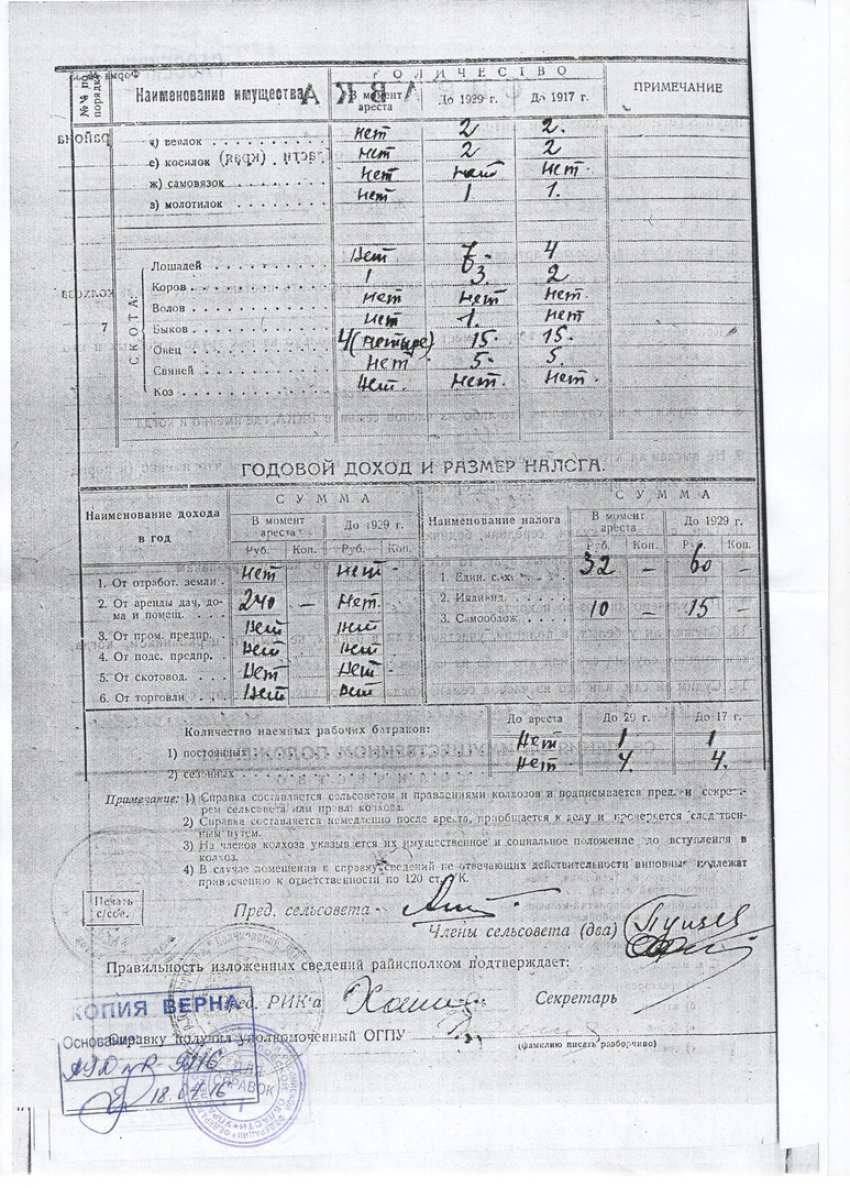 №№ по порядку
Наименование имущества
КОЛИЧЕСТВО
В момент ареста
До 1929 г.
До 1917 г.
ПРИМЕЧАНИЕ
д) веялок нет 2 2.
е) косилок нет 2 2
ж) самовязок нет нет нет.
з) молотилок нет 1 1.
7
СКОТА:
Лошадей нет 7. 4
Коров 1 3. 2
Волов нет нет нет.
Быков нет 1. нет
Овец 4 (четыре) 15. 15.
Свиней нет 5. 5.
Коз нет. нет. нет.
ГОДОВОЙ ДОХОД И РАЗМЕР НАЛОГА.
Наименование дохода в год
СУММА
В момент ареста
До 1929 г.
Руб. Коп. Руб. Коп.
1. От отработ. земли нет нет
2. От аренды дач, дома и помещ. 240 — нет.
3. От пром. предпр. нет нет
4. От подс. предпр. нет нет
5. От скотовод. нет нет.
6. От торговли нет нет
Наименование налога
СУММА
В момент ареста
До 1929 г.
Руб. Коп. Руб. Коп.
1. Един. с.-х. 32 — 60 —
2. Индивид.
3. Самооблож. 10 — 15 —
Количество наемных рабочих батраков:
До ареста До 29 г. До 17 г.
1) постоянных нет 1 1
2) сезонных нет 4. 4.
Примечание: 1) Справка составляется сельсоветом и правлениями колхозов и подписывается пред. и секрета-
рем сельсовета или правл. колхоза.
2) Справка составляется немедленно после ареста, приобщается к делу и проверяется следствен-
ным путем.
3) На членов колхоза указывается их имущественное и социальное положение до вступления в
колхоз.
4) В случае помещения в справку сведений не отвечающих действительности виновные подлежат
привлечению к ответственности по 120 ст. УК.
Печать с/сов.
Пред. сельсовета
Члены сельсовета (два)
Правильность изложенных сведений райисполком подтверждает:
Пред. РИК'а
Секретарь
Справку получил уполномоченный ОГПУ
(фамилию писать разборчиво)
КОПИЯ ВЕРНА
Основание
18.04.16
ДЛЯ СПРАВОК
1